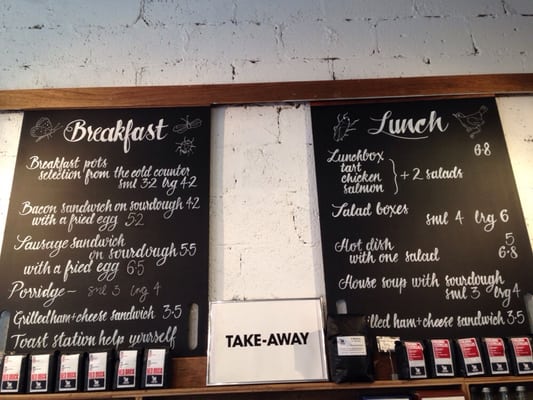 Breakfast
Breakfast pots
selection from the cold counter
sml 3·2 lrg 4·2
Bacon sandwich on sourdough 4·2
with a fried egg 5·2
Sausage sandwich
on sourdough 5·5
with a fried egg 6·5
Porridge - sml 3 lrg 4
Grilled ham + cheese sandwich 3·5
Toast station help yourself
TAKE-AWAY
Lunch
6·8
Lunchbox
tart
chicken + 2 salads
salmon
Salad boxes
sml 4 lrg 6
5
Hot dish
with one salad 6·8
House soup with sourdough
sml 3 lrg 4
rilled ham + cheese sandwich 3·5